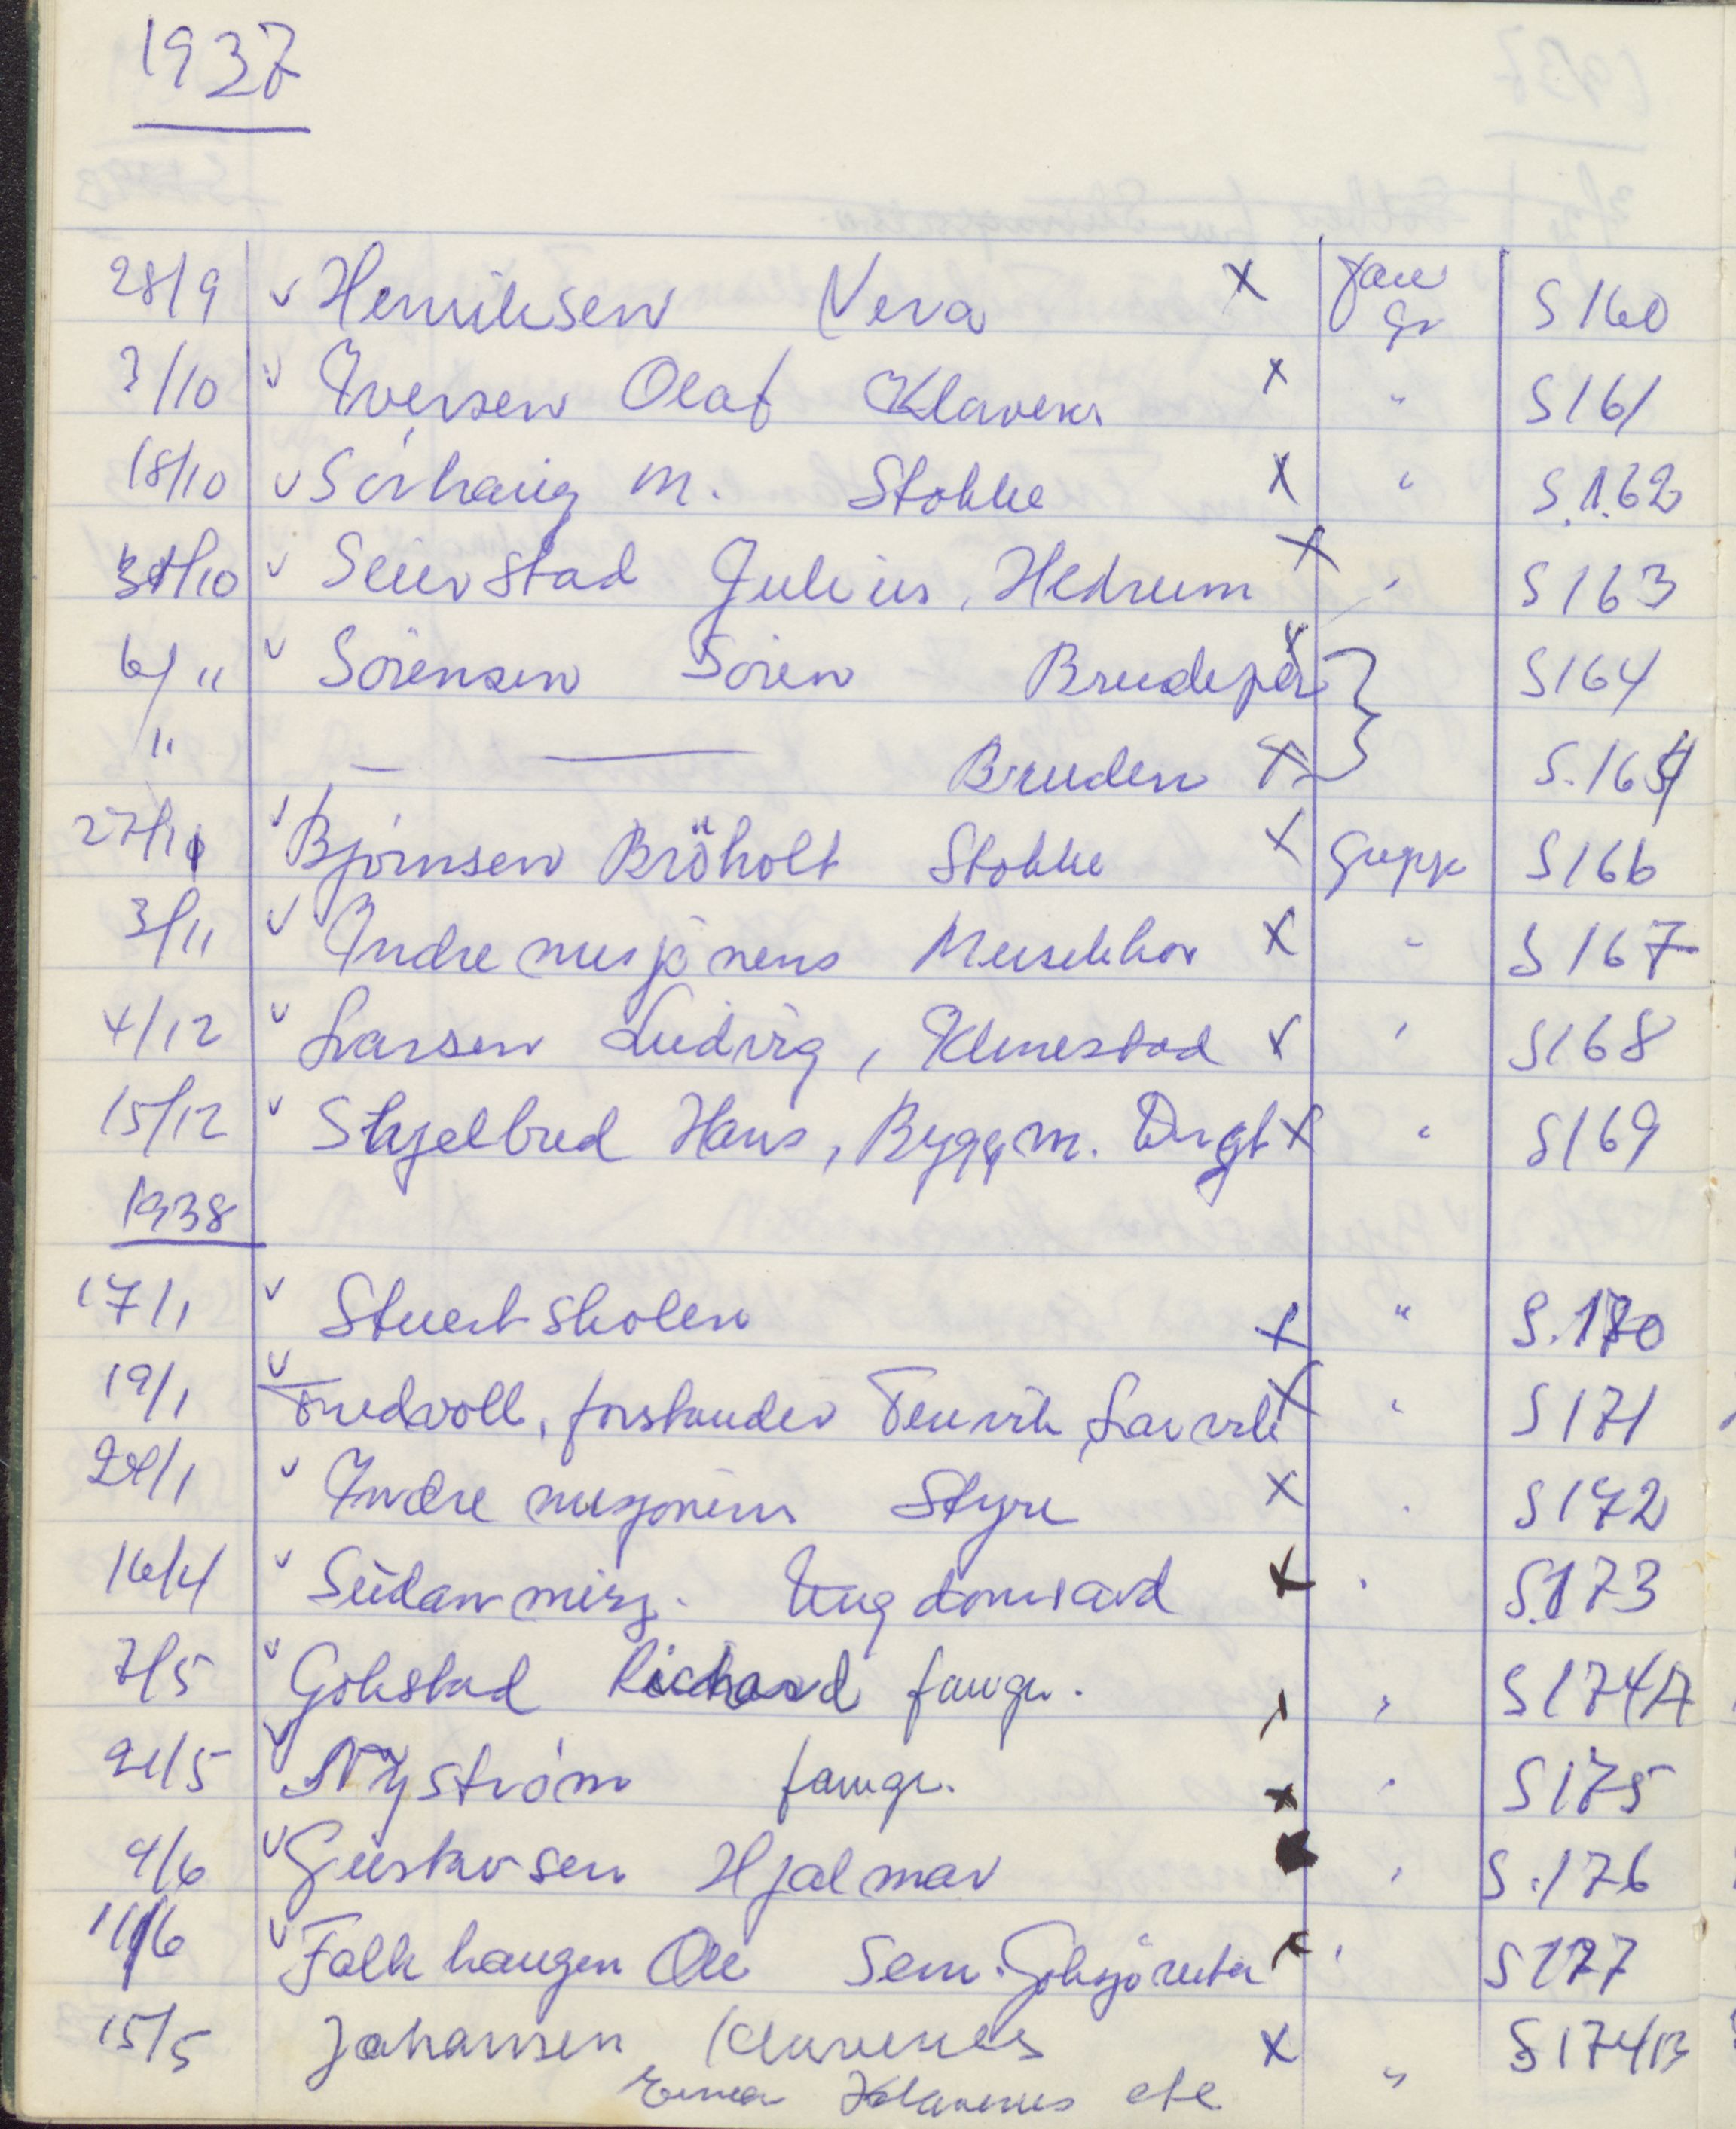 1937
28/9 v Henriksen Vera x fam gr S 160
3/10 v Iversen Olaf Klavenes x " S 161
18/10 v Sörhaug M. Stokke x " S.1.62
v Seierstad Julius, Hedrum x " S 163
6/11 v Sörensen Sören Brudepar x } S 164
" — — Bruden x S.164
v Björnsen Bröholt Stokke x Gruppe S 166
3/11 v Indre misjonens Musikkor x " S 167
4/12 v Larsen Ludvig, Klinestad x " S 168
15/12 v Skjelbred Hans, Byggm. x " S 169
1938
17/1 v Stuert skolen x " S.170
19/1 v forstander Larvik x " S 171
v Indre misjonens Styre x " S 172
16/4 v Sudan misj. Ungdomsavd x " S.173
7/5 v Gokstad Richard famgr. x " S 174A
21/5 v Nyström famgr. x " S 175
4/6 v Gustavsen Hjalmar " S.176
11/6 v Falkhaugen Ole Sem. Goksjöruta x " S 177
15/5 Johansen Klavenes x " S 174B
Klavenes etc